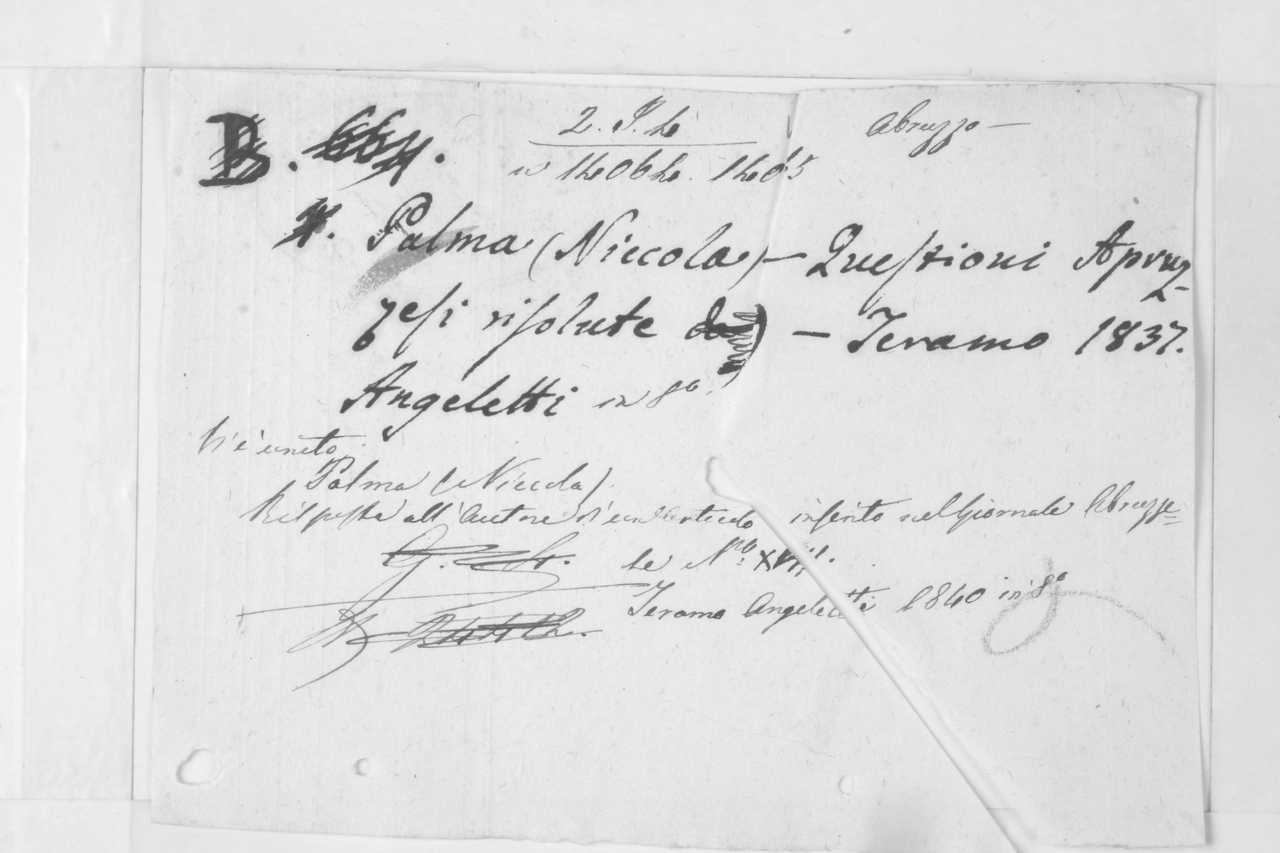 B.
Abruzzo —
Palma (Niccola) — Queſtioni Apruz-
zeſi riſolute — Teramo 1837.
Angeletti in 8º.
Vi è unito
Palma (Niccola)
Riſpoſta all'Autore d'un articolo inſerito nel Giornale Abruzze=
se Nº. XVII.
Teramo Angeletti 1840 in 8º